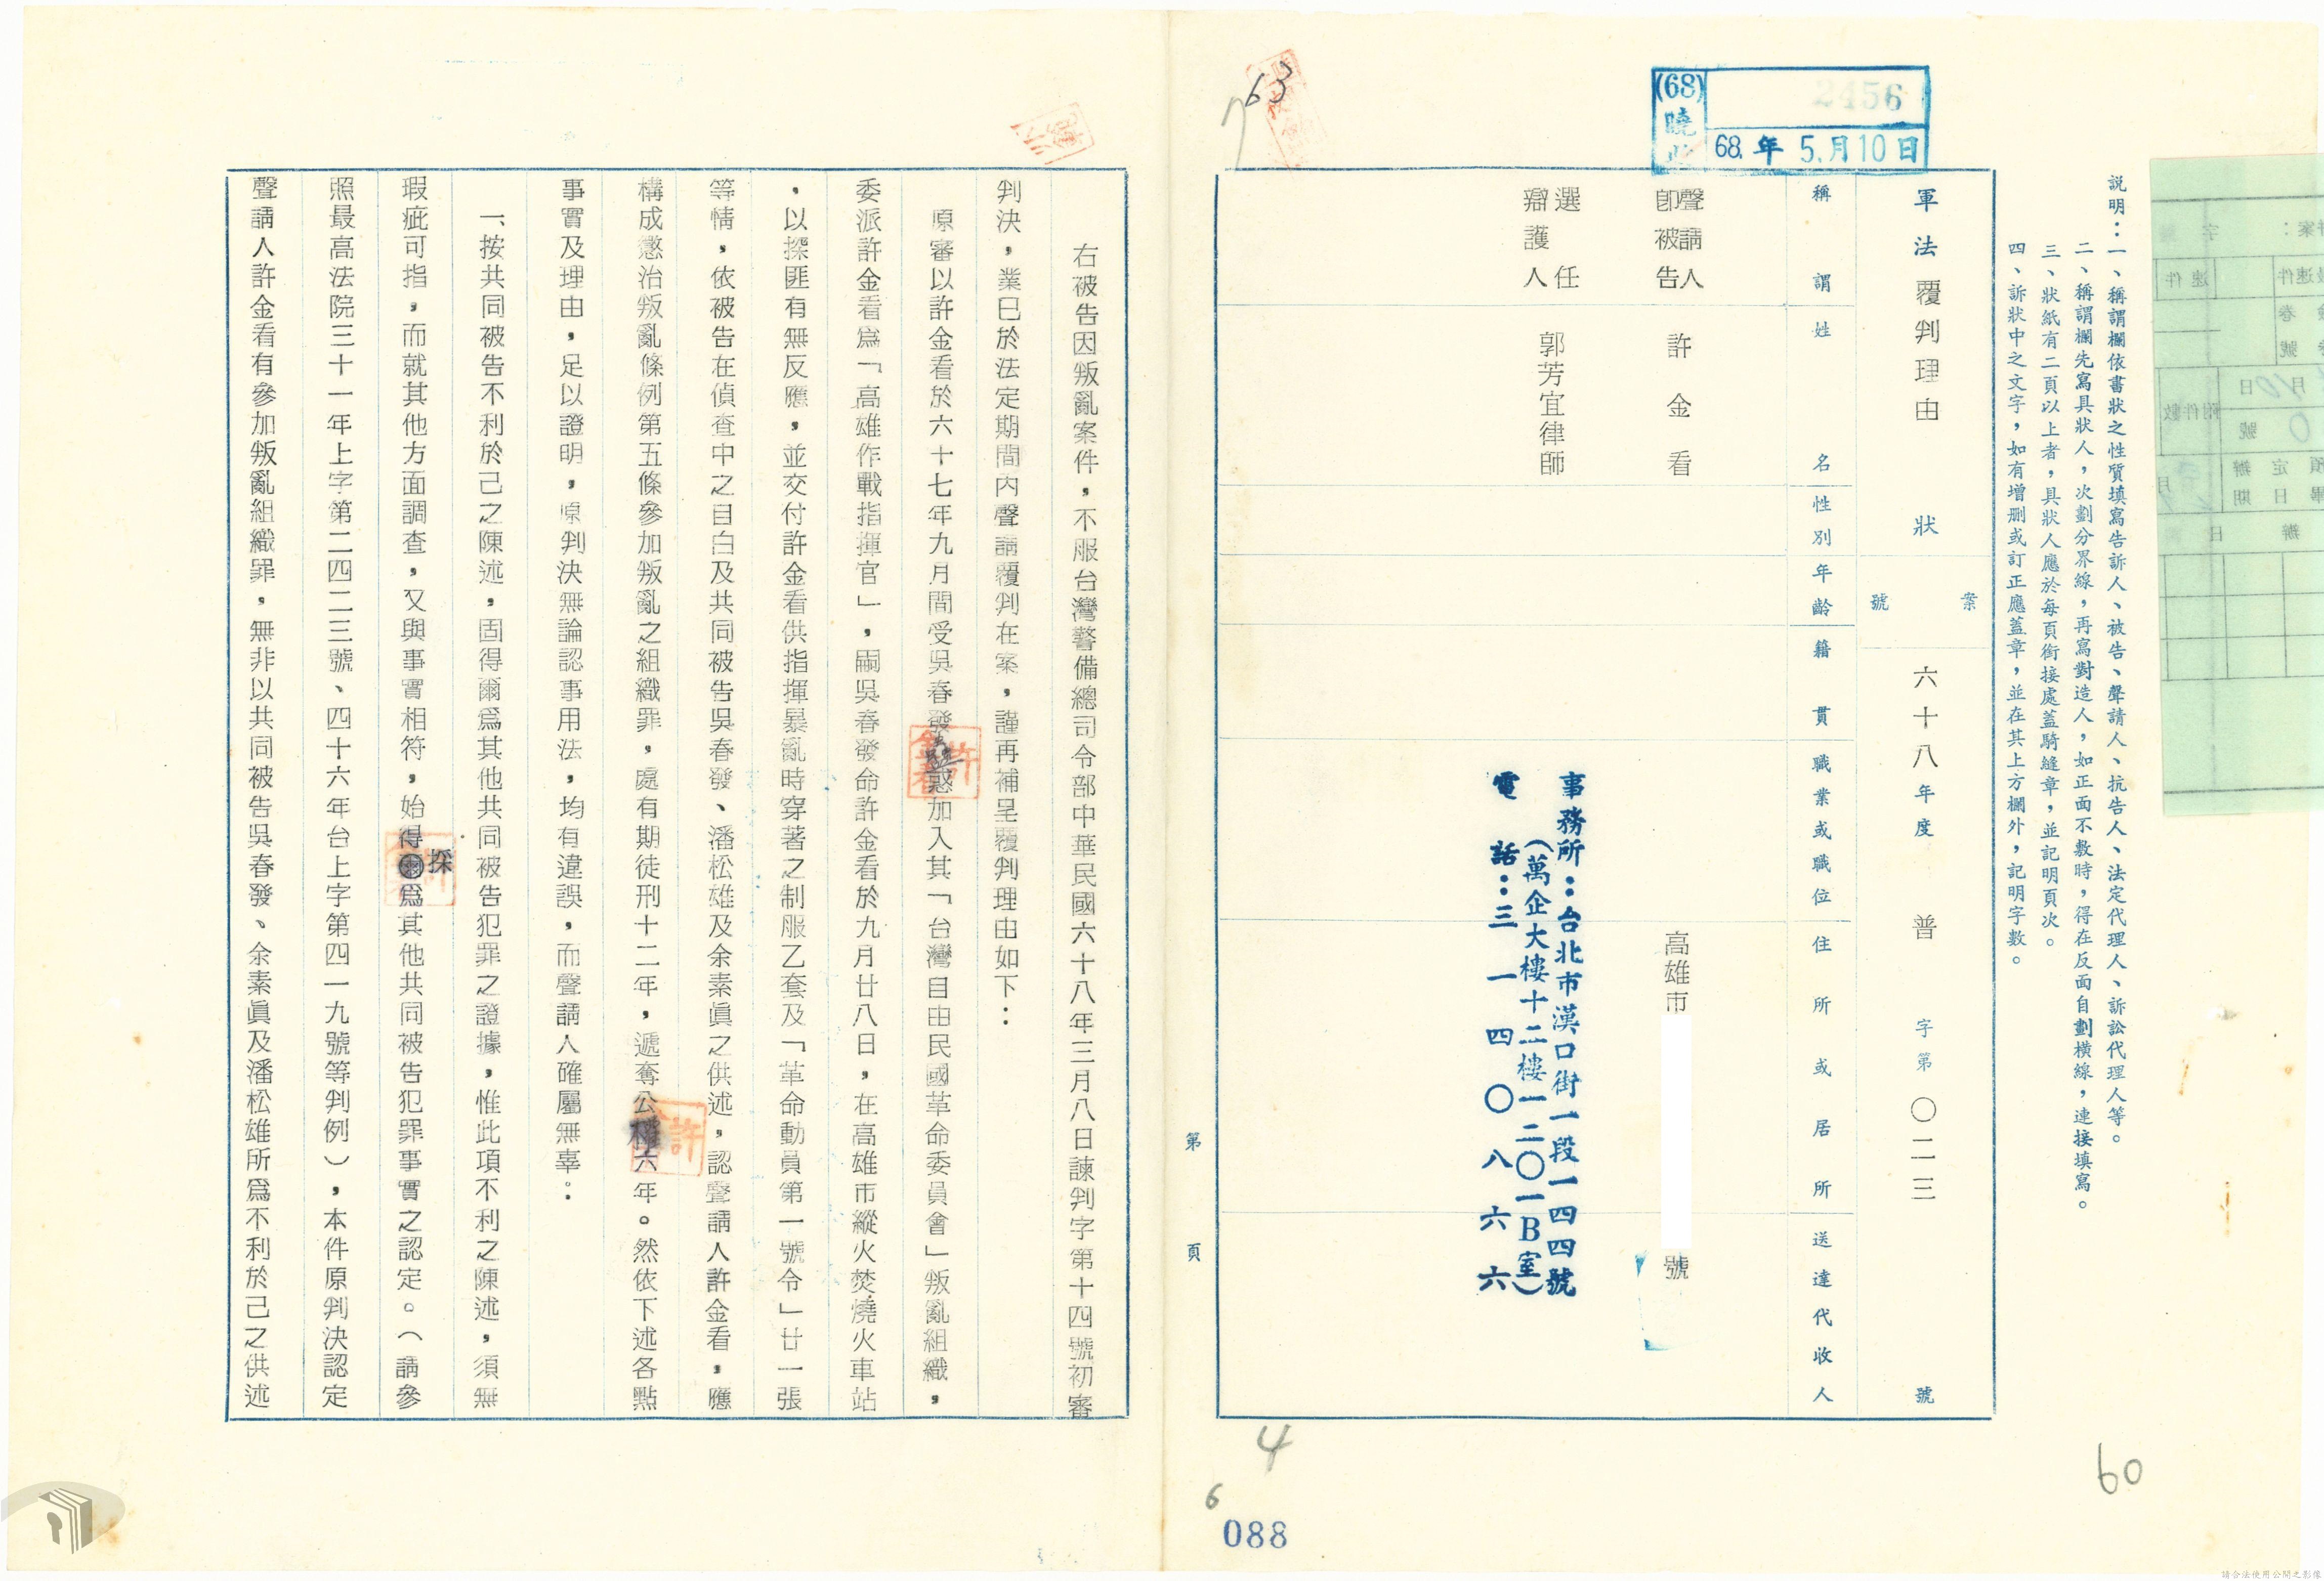 說明：一、稱謂欄依書狀之性質填寫告訴人、被告、聲請人、抗告人、法定代理人、訴訟代理人等。
二、稱謂欄先寫具狀人，次劃分界線，再寫對造人，如正面不敷時，得在反面自劃橫線，連接填寫。
三、狀紙有二頁以上者，具狀人應於每頁銜接處蓋騎縫章，並記明頁次。
四、訴狀中之文字，如有增刪或訂正應蓋章，並在其上方欄外，記明字數。
(68)
2456
68.年5.月10日
軍法覆判理由狀
案號
六十八年度 普 字第〇二三號
稱謂
姓名
性別
年齡
籍貫
職業或職位
住所或居所
送達代收人
聲請人
即被告
許金看
高雄市 號
選任
辯護人
郭芳宜律師
事務所：台北市漢口街一段一四四號
（萬企大樓十二樓一二〇一B室）
電話：三一四〇八六六
第 頁
63
4
6
088
60
右被告因叛亂案件，不服台灣警備總司令部中華民國六十八年三月八日諫判字第十四號初審
判決，業已於法定期間內聲請覆判在案，謹再補呈覆判理由如下：
原審以許金看於六十七年九月間受吳春發惑加入其「台灣自由民國革命委員會」叛亂組織，
委派許金看爲「高雄作戰指揮官」，嗣吳春發命許金看於九月廿八日，在高雄市縱火焚燒火車站
，以探匪有無反應，並交付許金看供指揮暴亂時穿著之制服乙套及「革命動員第一號令」廿一張
等情，依被告在偵查中之自白及共同被告吳春發、潘松雄及余素眞之供述，認聲請人許金看，應
構成懲治叛亂條例第五條參加叛亂之組織罪，處有期徒刑十二年，遞奪公權六年。然依下述各點
事實及理由，足以證明，原判決無論認事用法，均有違誤，而聲請人確屬無辜。：
一、按共同被告不利於己之陳述，固得爾爲其他共同被告犯罪之證據，惟此項不利之陳述，須無
瑕疵可指，而就其他方面調查，又與事實相符，始得採爲其他共同被告犯罪事實之認定。（請參
照最高法院三十一年上字第二四二三號、四十六年台上字第四一九號等判例），本件原判決認定
聲請人許金看有參加叛亂組織罪，無非以共同被告吳春發、余素眞及潘松雄所爲不利於己之供述
請合法使用公開之影像